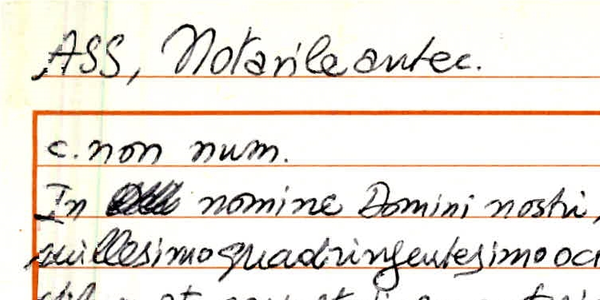 ASS, Notarile antec.
c. non num.
In nomine Domini nostri,
millesimoquadringentesimo